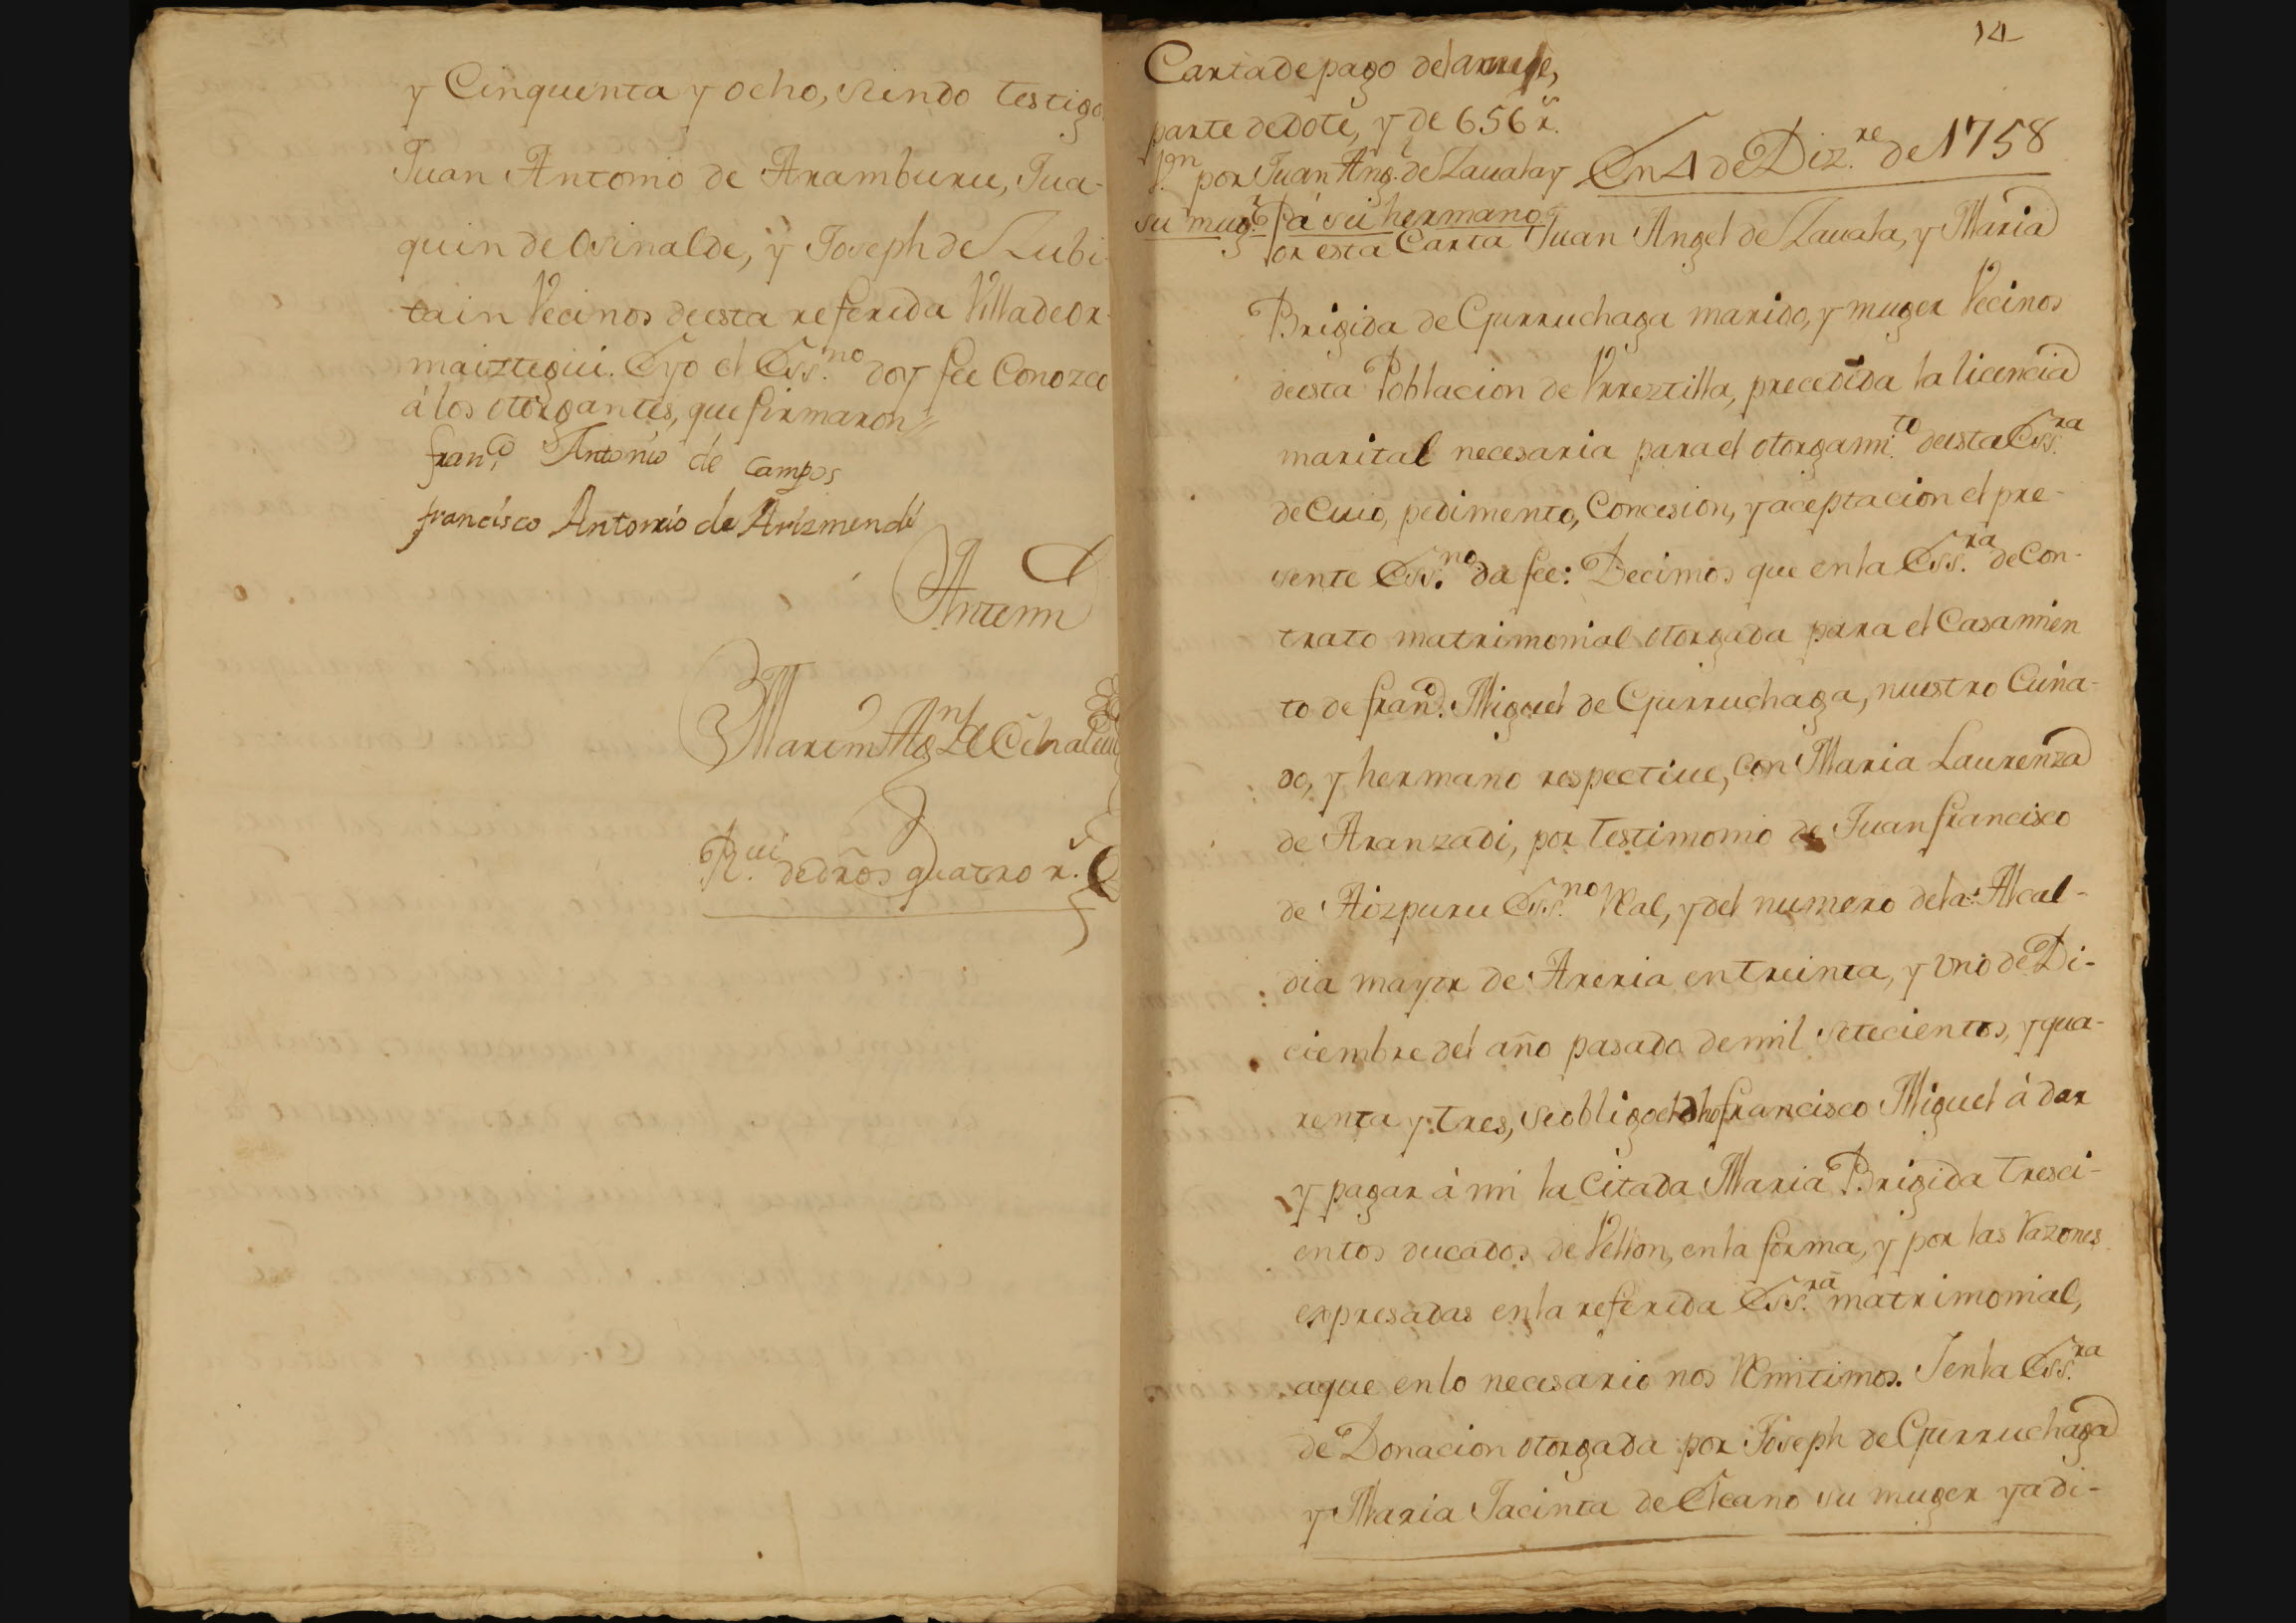 y Cinquenta y ocho, siendo testigo
Juan Antonio de Aramburu, Jua-
quin de Osinalde, y Joseph de Zubi-
tain Vecinos deesta referida Villa de Or-
maiztegui. E yo el Ess.no doy fee Conozco
á los otorgantes, que firmaron
fran.co Antonio de Campos
francisco Antonio de Arizmendi
Antemi
R.ui de dros quatro r.s
14
Carta de pago del arreo,
parte de dote, y de 656 r.s
V.on por Juan Ang. de Zavala y
su mug.r á su hermano
En 4 de Diz.re de 1758
Por esta Carta Juan Angel de Zavala, y Maria
Brigida de Gurruchaga marido, y muger Vecinos
deesta Poblacion de Vrreztilla, precedida la licencia
marital necesaria para el otorgami.to deesta Ess.ra
de Cuio, pedimento, Concesion, y aceptacion el pre-
sente Ess.no da fee: Decimos que en la Ess.ra de Con-
trato matrimonial otorgada para el Casamien
to de fran.co Miguel de Gurruchaga, nuestro Cuña-
do, y hermano respective, con Maria Laurenza
de Aranzadi, por testimonio de Juan francisco
de Aizpuru Ess.no Real, y del numero de la Alcal-
dia mayor de Areria en treinta, y uno de Di-
ciembre del año pasado de mil setecientos, y qua-
renta y tres, se obligo el dho francisco Miguel á dar
y pagar á mi la Citada Maria Brigida tresci-
entos ducados de Vellon, en la forma, y por las Razones
expresadas en la referida Ess.ra matrimonial,
aque en lo necesario nos Remitimos. I en la Ess.ra
de Donacion otorgada por Joseph de Gurruchaga
y Maria Jacinta de Elcano su muger ya di-